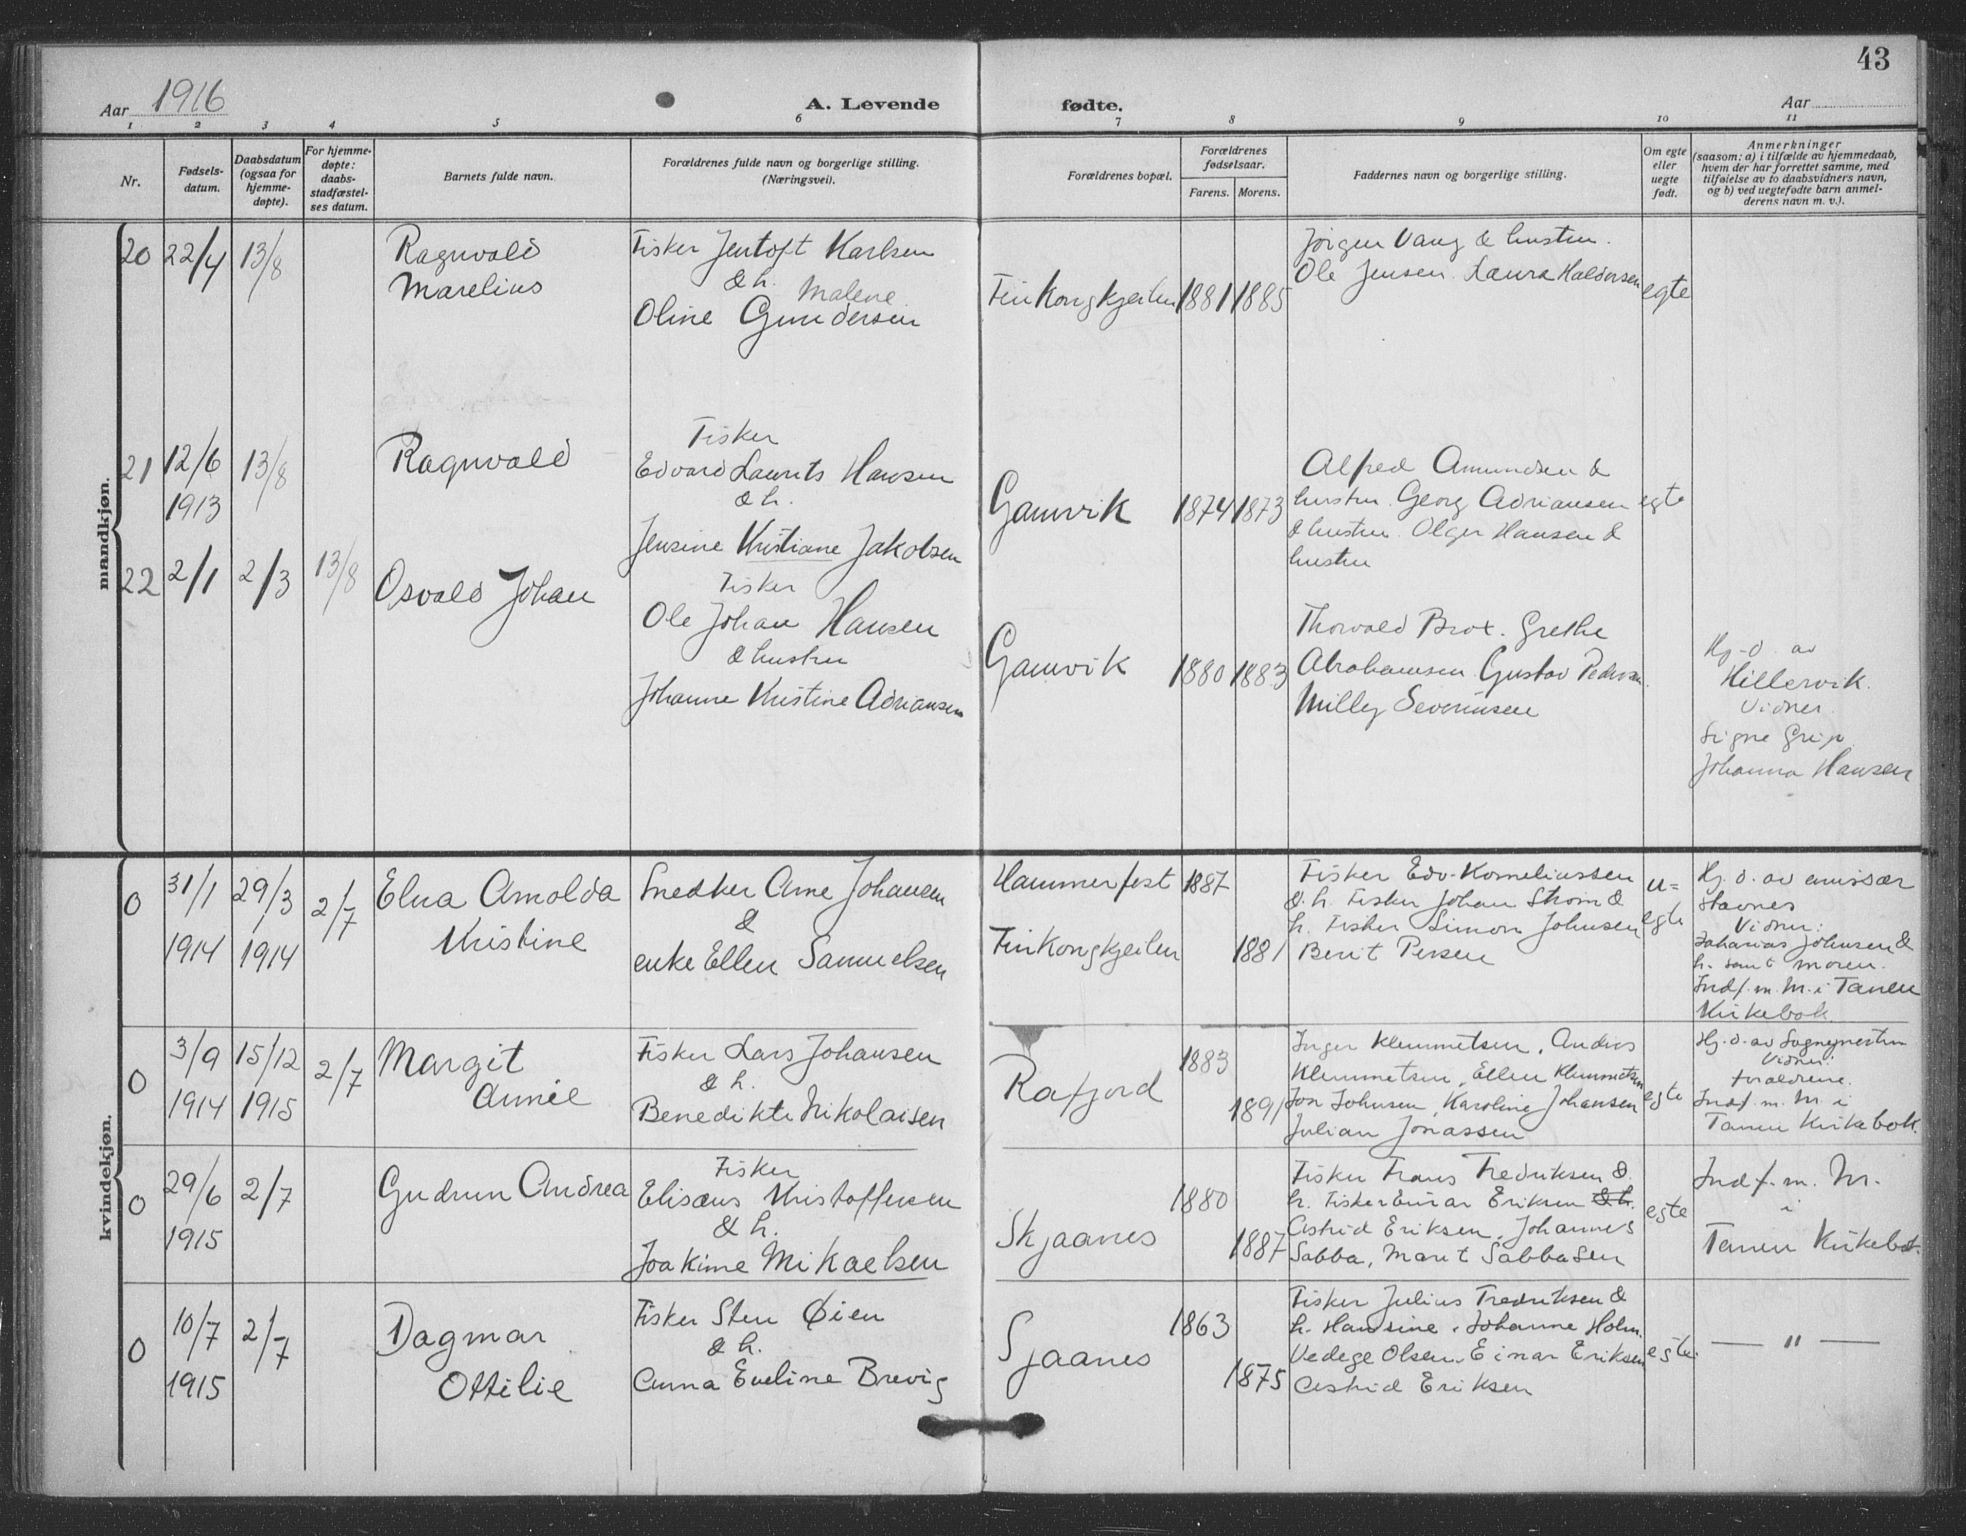 43
Aar 1916
A. Levende fødte.
Aar
1 2 3 4 5 6 7 8 9 10 11
Nr.
Fødsels-
datum.
Daabsdatum
(ogsaa for
hjemme-
døpte).
For hjemme-
døpte:
daabs-
stadfæstel-
ses datum.
Barnets fulde navn.
Forældrenes fulde navn og borgerlige stilling.
(Næringsvei).
Forældrenes bopæl.
Forældrenes
fødselsaar.
Farens. Morens.
Faddernes navn og borgerlige stilling.
Om egte
eller
uegte
født.
Anmerkninger
(saasom: a) i tilfælde av hjemmedaab,
hvem der har forrettet samme, med
tilføielse av to daabsvidners navn,
og b) ved uegtefødte barn anmel-
derens navn m. v.).
mandkjøn.
20 22/4 13/8
Ragnvald
Marelius
Fisker Jentoft Karlsen
& h.
Malene
Oline Gundersen
Finkongkjeilen 1881 1885
Jørgen Vang & hustru.
Ole Jensen. Laura Haldorsen
egte
21 12/6
1913
13/8
Ragnvald
Fisker
Edvard Laurits Hansen
& h.
Jensine Kristiane Jakobsen
Gamvik 1874 1873
Alfred Amundsen &
hustru. Georg Adriansen
& hustru. Olger Hansen &
hustru
egte
22 2/1 2/3 13/8
Osvald Johan
Fisker
Ole Johan Hansen
& hustru
Johanne Kristine Adriansen
Gamvik 1880 1883
Thorvald Brox. Grethe
Abrahamsen Gustav Pedersen.
Milly Severinsen
Hj-d. av
Hillervik.
Vidner.
Signe Grip
Johanna Hansen
kvindekjøn.
0 31/1
1914
29/3
1914
2/7
Elna Arnolda
Kristine
Snedker Arne Johansen
&
enke Ellen Samuelsen
Hammerfest 1887
Finkongkjeilen 1881
Fisker Edv. Korneliussen
& h. Fisker Johan Strøm &
h. Fisker Simon Johnsen
Berit Persen
u-
egte
Hj. d. av emissær
Stavnes
Vidner:
Sakarias Johnsen &
h. samt moren.
Indf. m. M. i Tanen
Kirkebok
0 3/9
1914
15/12
1915
2/7
Margit
Annie
Fisker Lars Johansen
& h.
Benedikte Nikolaisen
Rafjord 1883
1891
Inger Klemmetsen, Anders
Klemmetsen, Ellen Klemmetsen
Jon Johnsen, Karoline Johansen
Julian Jonassen
egte
Hj. d. av Sognepresten
Vidner:
forældrene.
Indf. m. M. i
Tanen Kirkebok.
0 29/6
1915
2/7
Gudrun Andrea
Fisker
Elisæus Kristoffersen
& h.
Joakime Mikaelsen
Skjaanes 1880
1887
Fisker Frans Fredriksen &
h. Fisker Einar Eriksen & h.
Astrid Eriksen, Johannes
Sabba, Marit Sabbasen
egte
Indf. m. M.
i
Tanen Kirkebok.
0 10/7
1915
2/7
Dagmar
Ottilie
Fisker Sten Øien
& h.
Anna Eveline Brevig
Sjaanes 1863
1875
Fisker Julius Fredriksen &
h. Hansine. Johanne Holm.
Vedege Olsen. Einar Eriksen
Astrid Eriksen
egte.
— " —